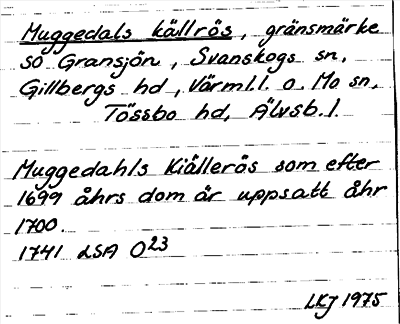 Muggedals källrös, gränsmärke
SO Gransjön, Svanskogs sn,
Gillbergs hd, Värml.l. o. Mo sn,
Tössbo hd, Älvsb.l.
Muggedahls Kiällerös som efter
1699 åhrs dom är uppsatt åhr
1700.
1741 LSA O23
LKJ 1975